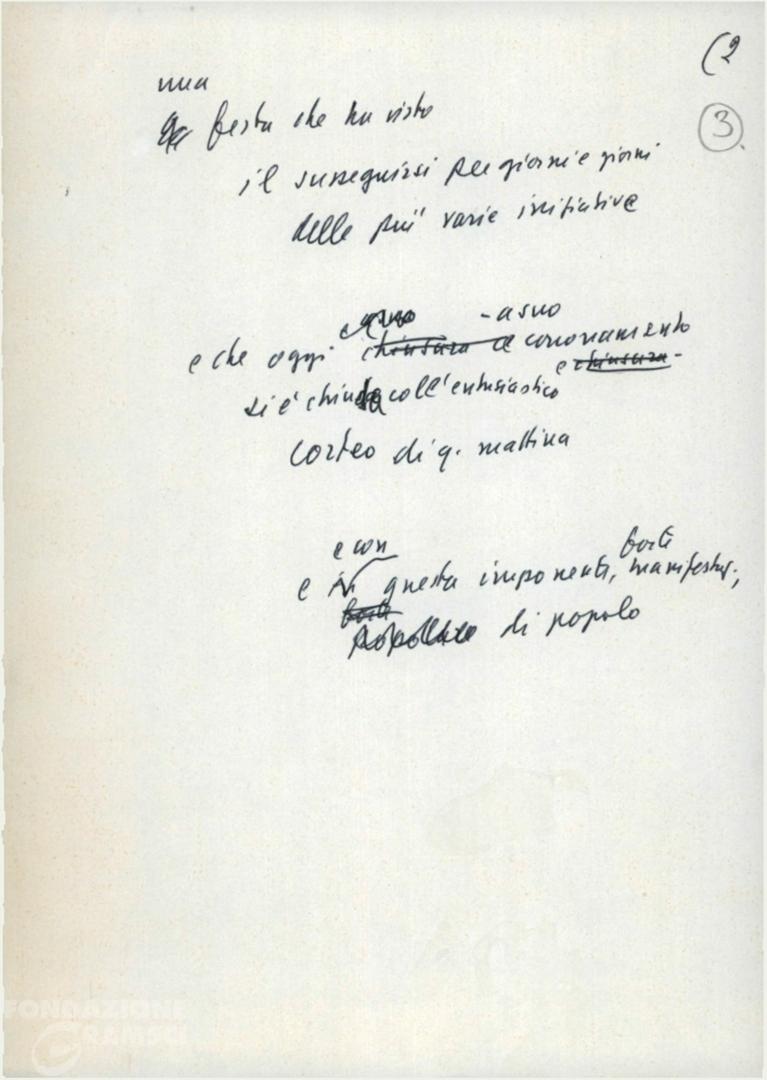 (2
3.
una
festa che ha visto
il susseguirsi per giorni e giorni
delle più varie iniziative
- a suo
e che oggi chiusura e coronamento
e chiusura -
si è chiusa coll'entusiastico
corteo di q. mattina
e con
forte
e in questa imponente, manifestaz.,
forte
di popolo
FONDAZIONE
GRAMSCI